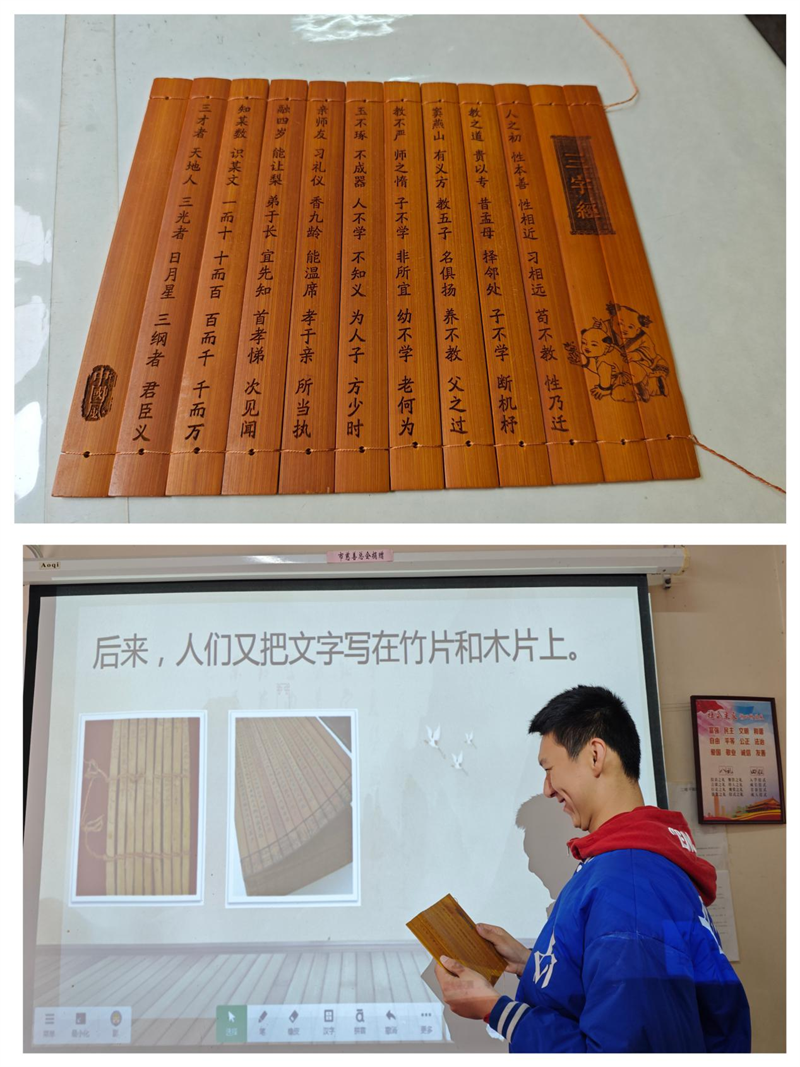 三字經
人之初 性本善 性相近 习相远 苟不教 性乃迁
教之道 贵以专 昔孟母 择邻处 子不学 断机杼
窦燕山 有义方 教五子 名俱扬 养不教 父之过
教不严 师之惰 子不学 非所宜 幼不学 老何为
玉不琢 不成器 人不学 不知义 为人子 方少时
亲师友 习礼仪 香九龄 能温席 孝于亲 所当执
融四岁 能让梨 弟于长 宜先知 首孝悌 次见闻
知某数 识某文 一而十 十而百 百而千 千而万
三才者 天地人 三光者 日月星 三纲者 君臣义
中國風
Aoqi
市慈善总会捐赠
后来，人们又把文字写在竹片和木片上。
富强 民主 文明 和谐
自由 平等 公正 法治
爱国 敬业 诚信 友善
最小化
选择
笔
橡皮
更多